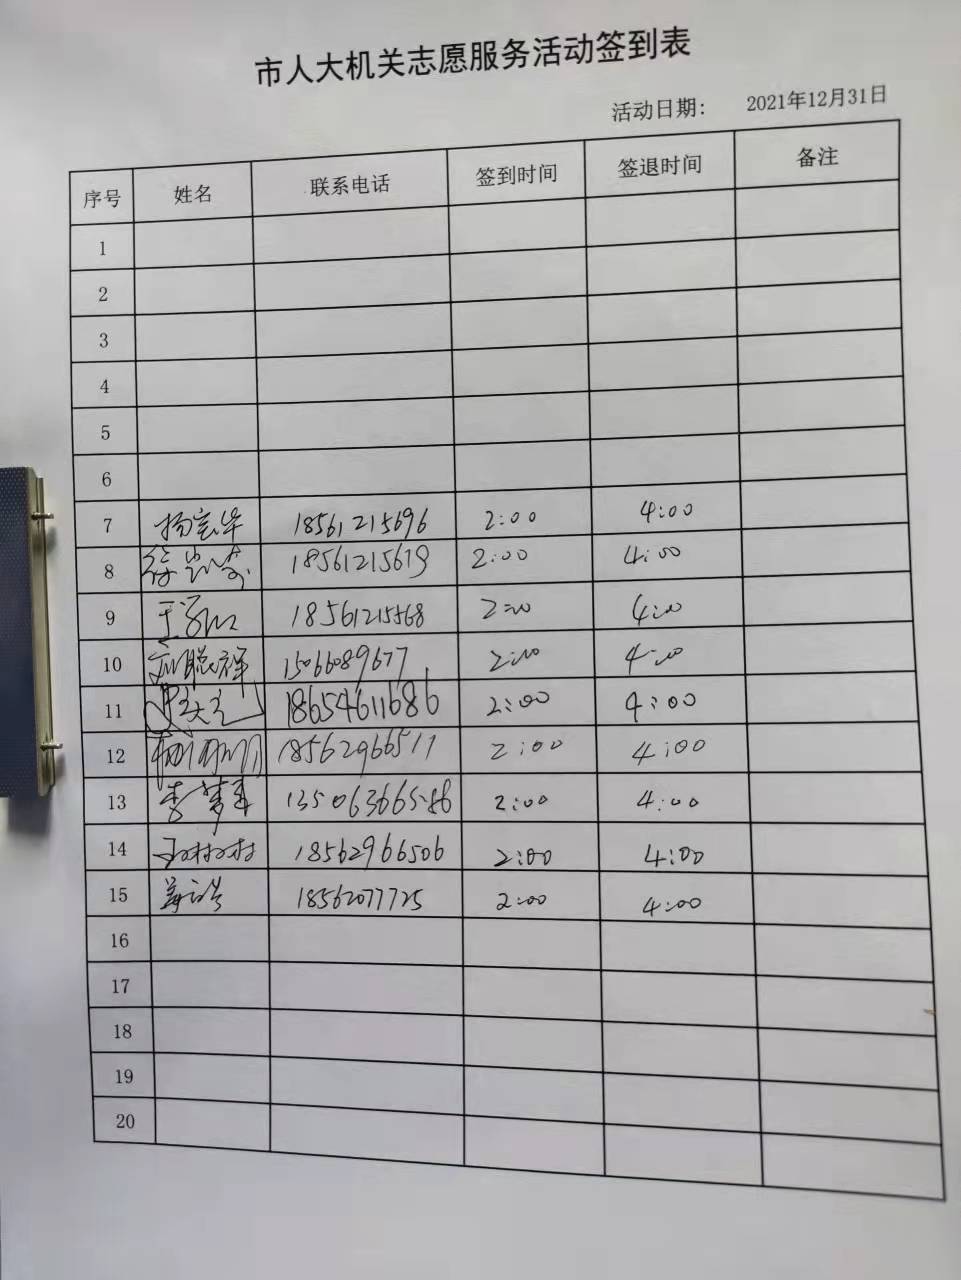 市人大机关志愿服务活动签到表
活动日期: 2021年12月31日
序号 姓名 联系电话 签到时间 签退时间 备注
1
2
3
4
5
6
7 杨宝华 18561215696 2:00 4:00
8 18561215619 2:00 4:00
9 18561215568 2:00 4:00
10 刘聪祥 15066089677 2:00 4:00
11 18654611686 2:00 4:00
12 18562966511 2:00 4:00
13 李梦 13506366586 2:00 4:00
14 18562966506 2:00 4:00
15 18562077725 2:00 4:00
16
17
18
19
20